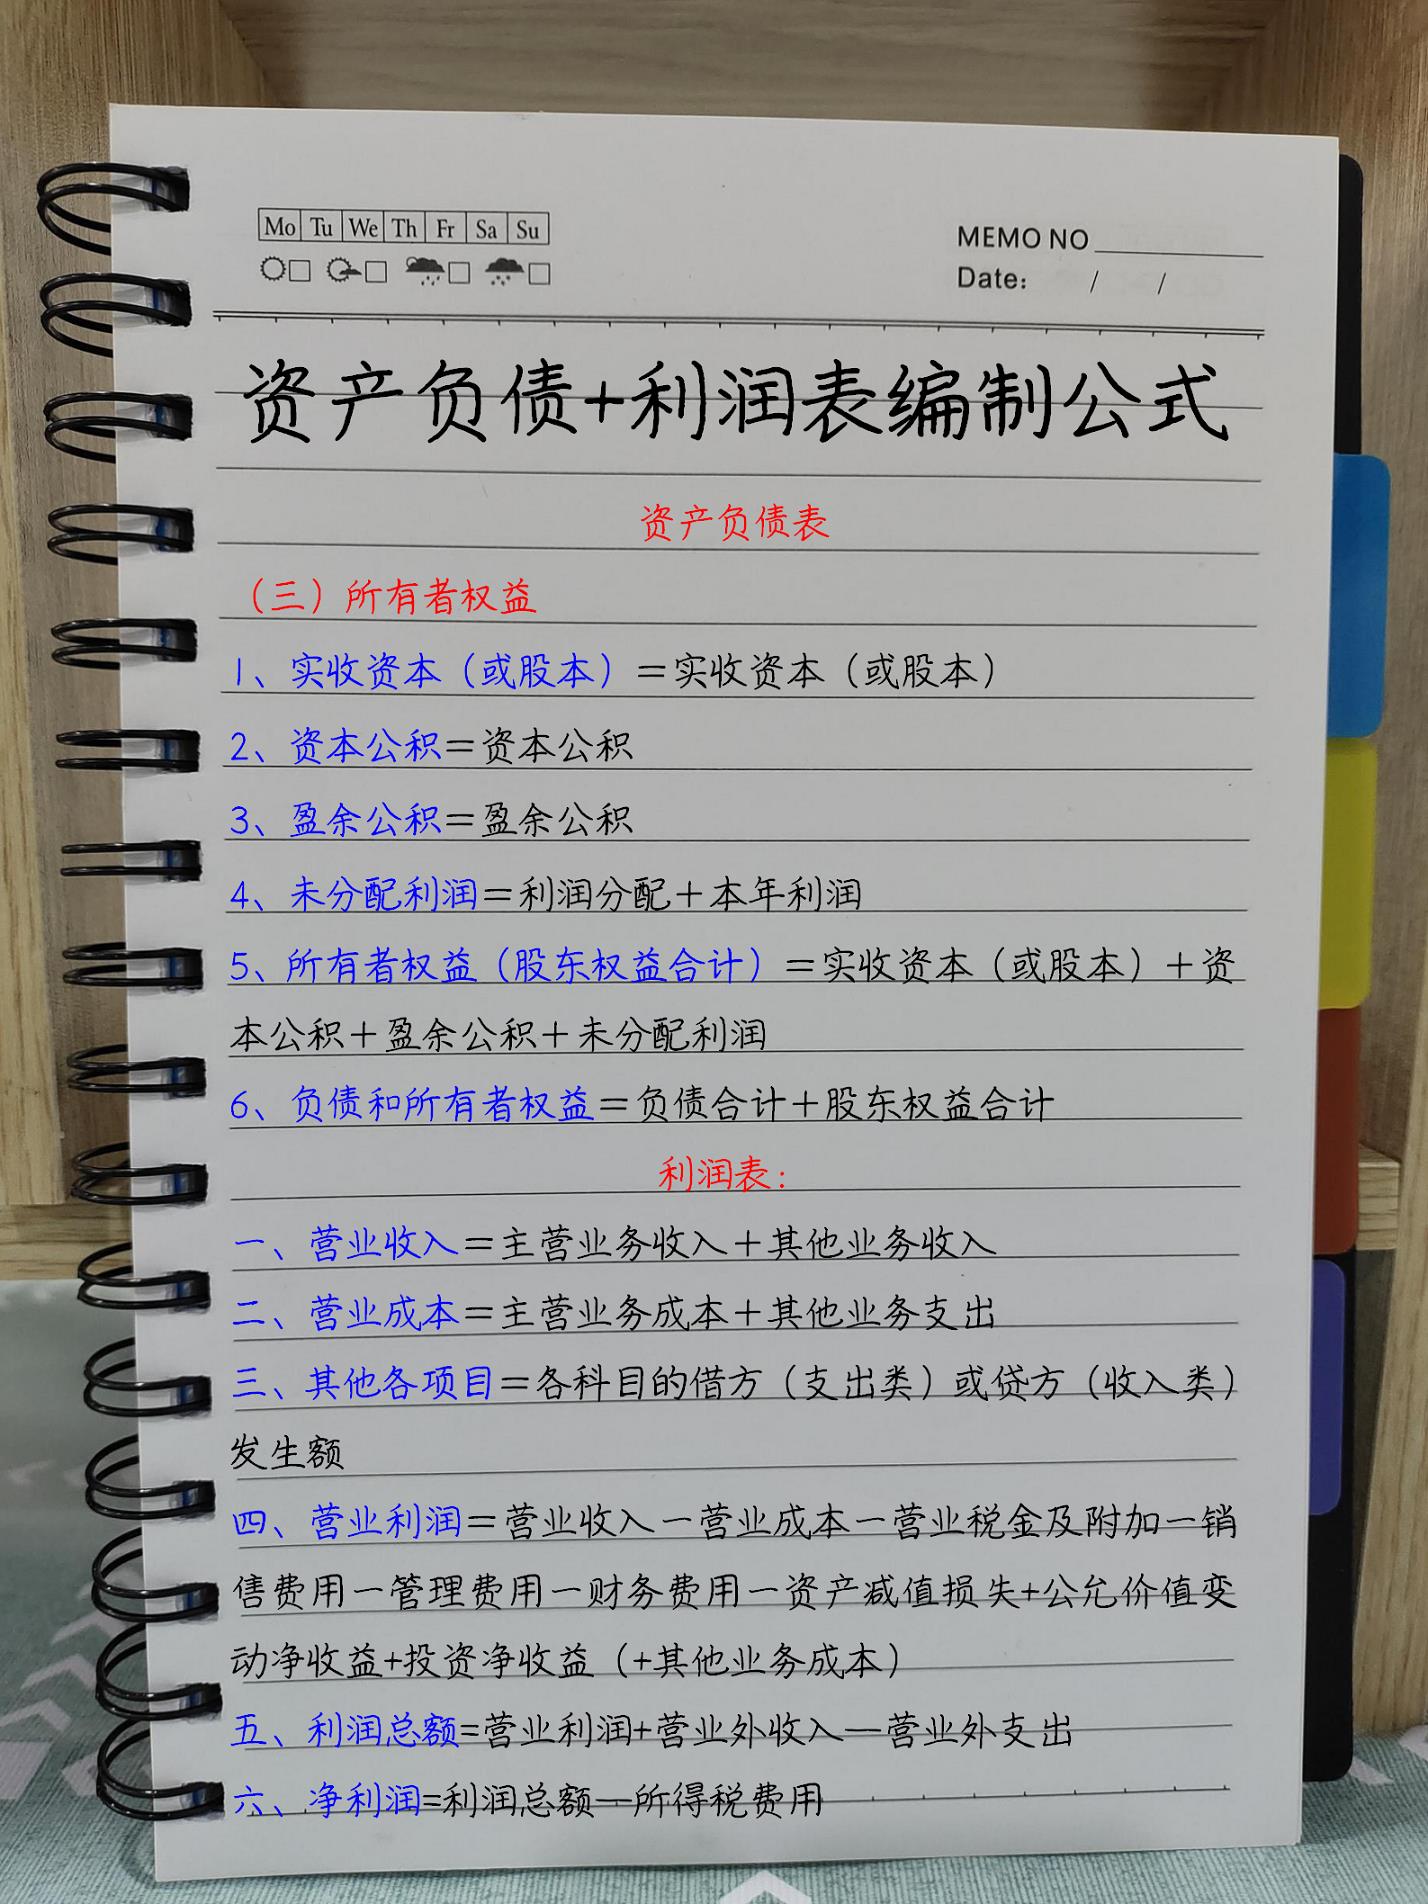 Mo Tu We Th Fr Sa Su
MEMO NO
Date: / /
资产负债+利润表编制公式
资产负债表
（三）所有者权益
1、实收资本（或股本）＝实收资本（或股本）
2、资本公积＝资本公积
3、盈余公积＝盈余公积
4、未分配利润＝利润分配＋本年利润
5、所有者权益（股东权益合计）＝实收资本（或股本）＋资
本公积＋盈余公积＋未分配利润
6、负债和所有者权益＝负债合计＋股东权益合计
利润表：
一、营业收入＝主营业务收入＋其他业务收入
二、营业成本＝主营业务成本＋其他业务支出
三、其他各项目＝各科目的借方（支出类）或贷方（收入类）
发生额
四、营业利润＝营业收入－营业成本－营业税金及附加－销
售费用－管理费用－财务费用－资产减值损失+公允价值变
动净收益+投资净收益（+其他业务成本）
五、利润总额=营业利润+营业外收入—营业外支出
六、净利润=利润总额—所得税费用